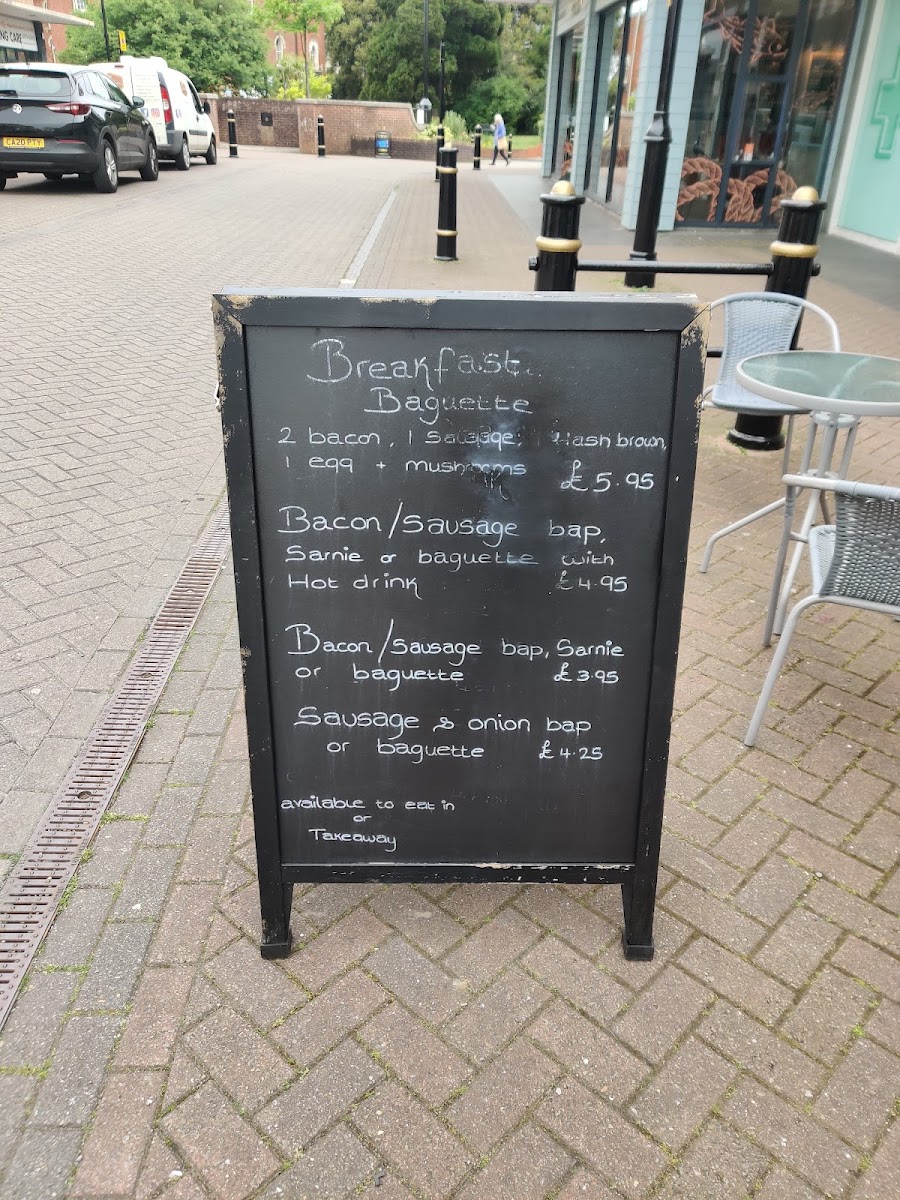 NG CARE
CA20 PTY
Breakfast
Baguette
2 bacon, 1 sausage, Hash brown,
1 egg + mushrooms £5.95
Bacon/Sausage bap,
Sarnie or baguette with
Hot drink £4.95
Bacon/Sausage bap, Sarnie
or baguette £3.95
Sausage & onion bap
or baguette £4.25
available to eat in
or
Takeaway